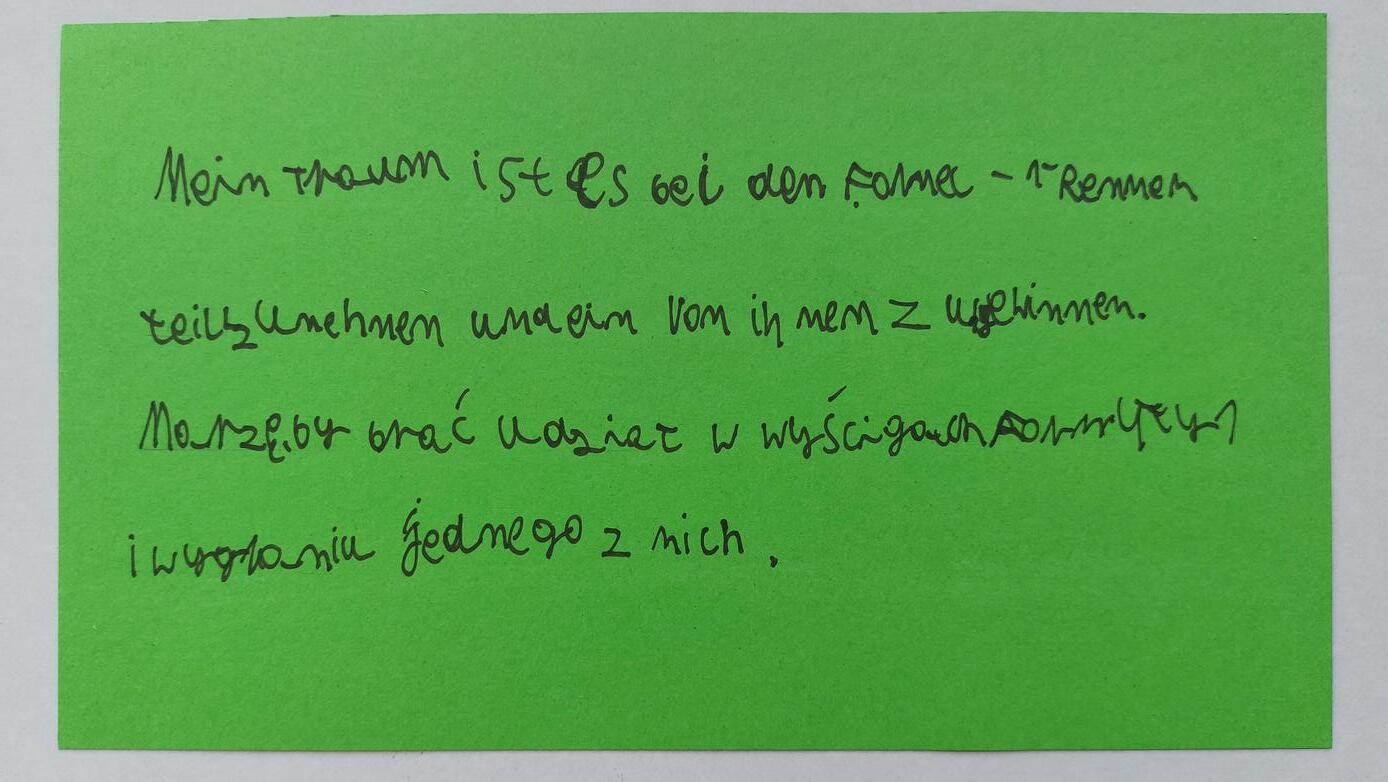 Mein Traum ist es bei den Formel - 1 Rennen
teilzunehmen und ein von ihnen zu gewinnen.
Marzę, by brać udział w wyścigach Formuły 1
i wygraniu jednego z nich.